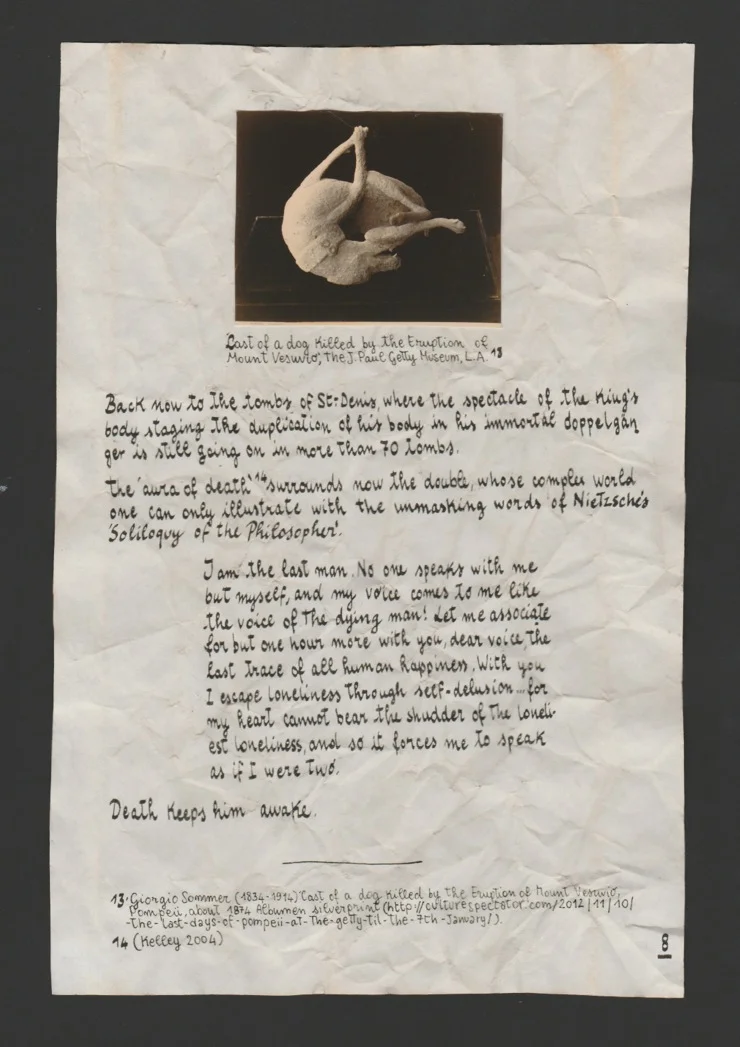 Cast of a dog killed by the Eruption of
Mount Vesuvio, The J. Paul Getty Museum, L.A. 13
Back now to the tombs of St-Denis, where the spectacle of the King's
body staging the duplication of his body in his immortal doppelgän
ger is still going on in more than 70 tombs.
The 'aura of death' 14 surrounds now the double, whose complex world
one can only illustrate with the unmasking words of Nietzsche's
'Soliloquy of the Philosopher'.
I am the last man. No one speaks with me
but myself, and my voice comes to me like
the voice of the dying man! Let me associate
for but one hour more with you, dear voice, the
last trace of all human happiness. With you
I escape loneliness through self-delusion...for
my heart cannot bear the shudder of the loneli-
est loneliness, and so it forces me to speak
as if I were two.
Death keeps him awake.
13 Giorgio Sommer (1834-1914) 'Cast of a dog killed by the Eruption of Mount Vesuvio,
Pompeii, about 1874 Albumen silverprint (http://culturespectator.com/2012/11/10/
-the-last-days-of-pompeii-at-the-getty-til-the-7th-January/).
14 (Kelley 2004)
8